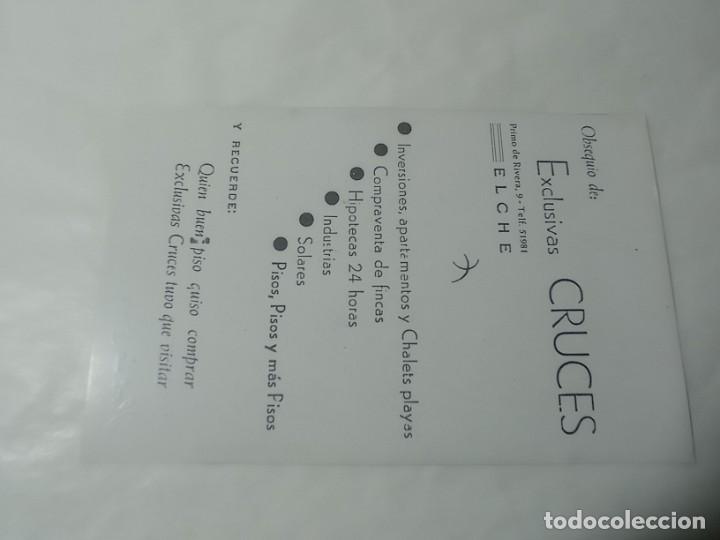 Obsequio de:
Exclusivas CRUCES
Primo de Rivera, 9 - Telf. 51981
ELCHE
Inversiones, apartamentos y Chalets playas
Compraventa de fincas
Hipotecas 24 horas
Industrias
Solares
Pisos, Pisos y más Pisos
Y RECUERDE:
Quien buen piso quiso comprar
Exclusivas Cruces tuvo que visitar
todocoleccion